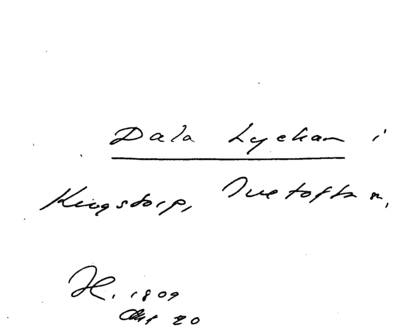 Dala Lyckan i
Kingstorp, Ivetofta n,
H. 1809
Okt 20